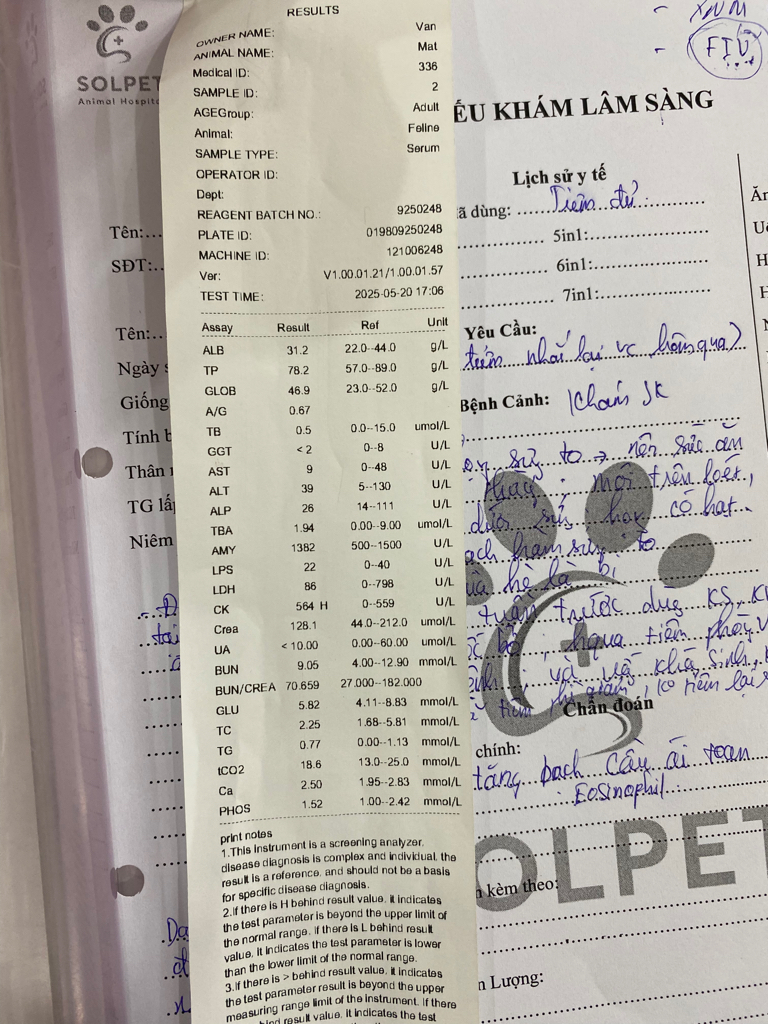 SOLPET
Animal Hospita
RESULTS
OWNER NAME: Van
ANIMAL NAME: Mat
Medical ID: 336
SAMPLE ID: 2
AGEGroup: Adult
Animal: Feline
SAMPLE TYPE: Serum
OPERATOR ID:
Dept:
REAGENT BATCH NO.: 9250248
PLATE ID: 019809250248
MACHINE ID: 121006248
Ver: V1.00.01.21/1.00.01.57
TEST TIME: 2025-05-20 17:06
Assay Result Ref Unit
ALB 31.2 22.0--44.0 g/L
TP 78.2 57.0--89.0 g/L
GLOB 46.9 23.0--52.0 g/L
A/G 0.67
TB 0.5 0.0--15.0 umol/L
GGT < 2 0--8 U/L
AST 9 0--48 U/L
ALT 39 5--130 U/L
ALP 26 14--111 U/L
TBA 1.94 0.00--9.00 umol/L
AMY 1382 500--1500 U/L
LPS 22 0--40 U/L
LDH 86 0--798 U/L
CK 564 H 0--559 U/L
Crea 128.1 44.0--212.0 umol/L
UA < 10.00 0.00--60.00 umol/L
BUN 9.05 4.00--12.90 mmol/L
BUN/CREA 70.659 27.000--182.000
GLU 5.82 4.11--8.83 mmol/L
TC 2.25 1.68--5.81 mmol/L
TG 0.77 0.00--1.13 mmol/L
tCO2 18.6 13.0--25.0 mmol/L
Ca 2.50 1.95--2.83 mmol/L
PHOS 1.52 1.00--2.42 mmol/L
print notes
1.This Instrument is a screening analyzer.
disease diagnosis is complex and individual, the
result is a reference, and should not be a basis
for specific disease diagnosis.
2.If there is H behind result value, it indicates
the test parameter is beyond the upper limit of
the normal range. if there is L behind result
value. It indicates the test parameter is lower
than the lower limit of the normal range.
3.if there is > behind result value. it indicates
the test parameter result is beyond the upper
measuring range limit of the instrument. If there
hind result value. it indicates the test
Tên:...
SĐT:..
Tên:
Ngày s
Giống
Tính b
Thân
TG lấ
Niêm
- FIV
ẾU KHÁM LÂM SÀNG
Lịch sử y tế
ã dùng: Tiêm đủ
5in1:
6in1:
7in1:
Yêu Cầu:
tiêm nhắc lại vc hôm qua)
Bệnh Cảnh: Khám SK
sứ to → nên sức ăn
môi trên loét,
có hạt
tuần trước dùng KS
Chẩn đoán
chính:
tăng bạch cầu ái toan
Eosinophil
kèm theo:
OLPET
n Lượng: